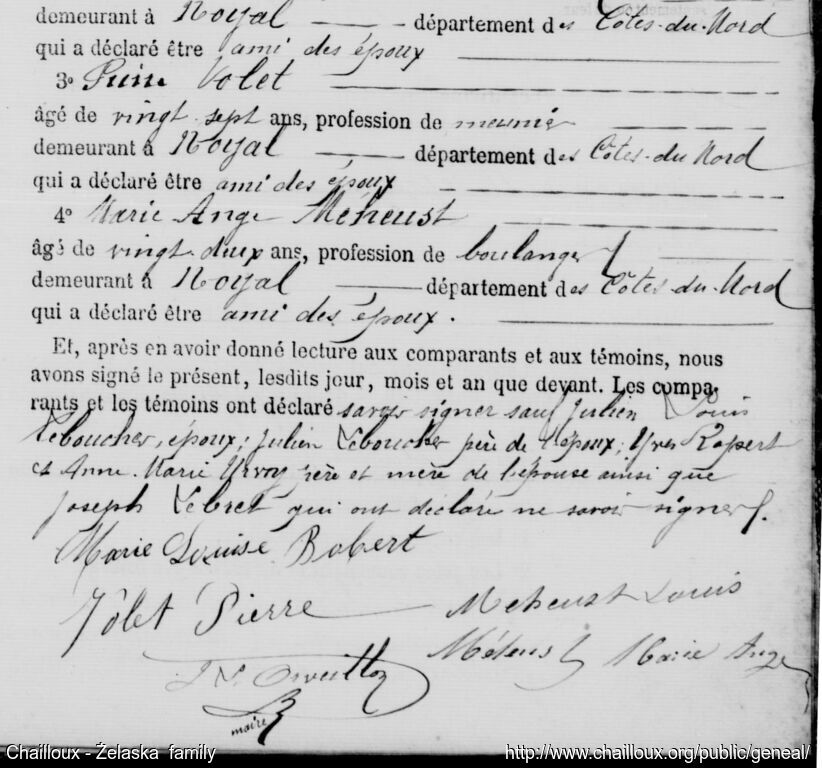 demeurant à Noyal département des Côtes-du-Nord
qui a déclaré être ami des époux
3º Pierre Volet
âgé de vingt sept ans, profession de meunier
demeurant à Noyal département des Côtes-du-Nord
qui a déclaré être ami des époux
4º Marie Ange Méheust
âgé de vingt-deux ans, profession de boulanger
demeurant à Noyal département des Côtes-du-Nord
qui a déclaré être ami des époux.
Et, après en avoir donné lecture aux comparants et aux témoins, nous
avons signé le présent, lesdits jour, mois et an que devant. Les compa-
rants et les témoins ont déclaré savoir signer sauf Julien Louis
Leboucher, époux; Julien Leboucher père de l'époux; Yves Robert
et Anne Marie Urvoy père et mère de l'épouse ainsi que
Joseph Lebret qui ont déclaré ne savoir signer.
Marie Louise Robert
Volet Pierre Meheust Louis
Méheust Marie Ange
maire
Chailloux - Żelaska family http://www.chailloux.org/public/geneal/